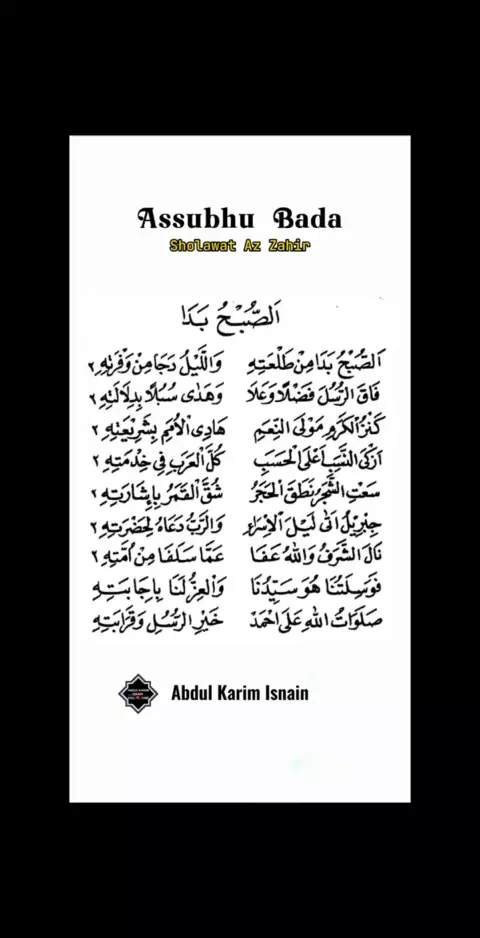 Assubhu Bada
Sholawat Az Zahir
اَلصُّبْحُ بَدَا
اَلصُّبْحُ بَدَا مِنْ طَلْعَتِهِ وَاللَّيْلُ دَجَا مِنْ وَفْرَتِهِ ٢
فَاقَ الرُّسُلَ فَضْلًا وَعَلَا وَهَدٰى سُبُلًا بِدِلَالَتِهِ ٢
كَنْزُ الْكَرَمِ مَوْلَى النِّعَمِ هَادِى الْاُمَمِ بِشَرِيْعَتِهِ ٢
اَزْكَى النَّسَبِ اَعْلَى الْحَسَبِ كُلُّ الْعَرَبِ فِى خِدْمَتِهِ ٢
سَعَتِ الشَّجَرُ نَطَقَ الْحَجَرُ شُقَّ الْقَمَرُ بِاِشَارَتِهِ ٢
جِبْرِيْلُ اَتٰى لَيْلَ الْاِسْرَاءِ وَالرَّبُّ دَعَاهُ لِحَضْرَتِهِ ٢
نَالَ الشَّرَفُ وَاللّٰهُ عَفَا عَمَّا سَلَفَا مِنْ اُمَّتِهِ ٢
فَوَسِلَتُنَا هُوَ سَيِّدُنَا وَالْعِزُّ لَنَا بِاِجَابَتِهِ
صَلَوَاتُ اللّٰهِ عَلَى اَحْمَدْ خَيْرِ الرُّسُلِ وَقَرَابَتِهِ
Abdul Karim Isnain